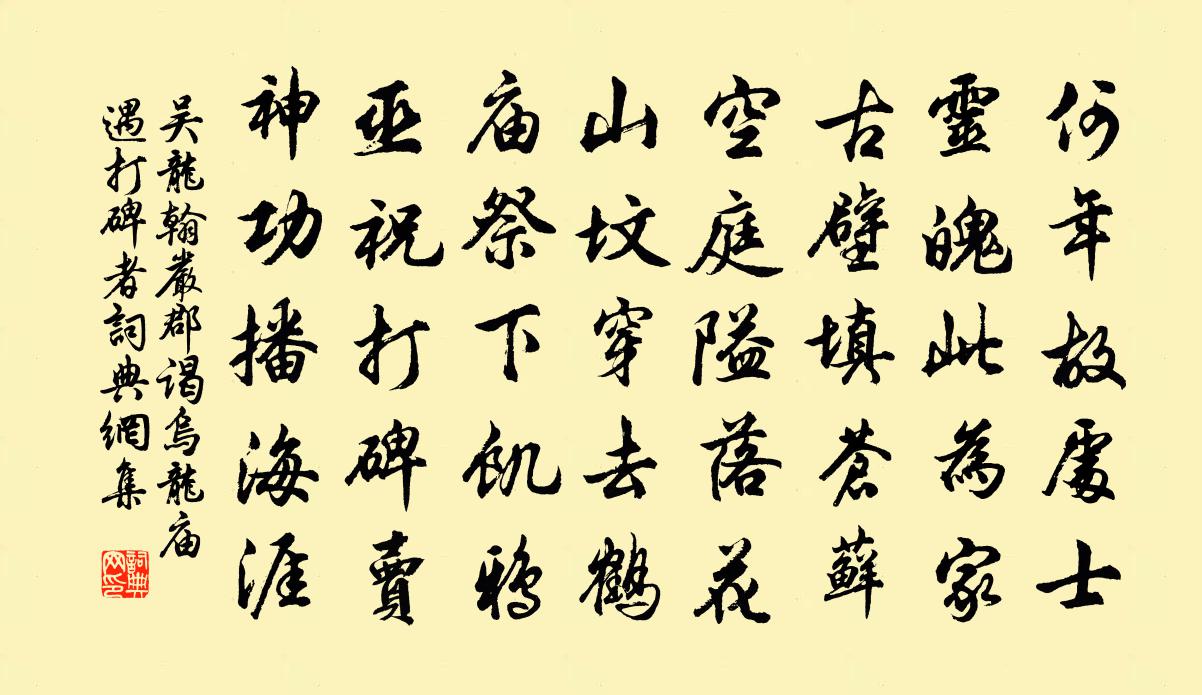 何年故處士
靈魄此為家
古壁填蒼蘚
空庭隘落花
山坟穿去鶴
庙祭下飢鴉
巫祝打碑賣
神功播海涯
吴龍翰嚴郡谒烏龍庙
遇打碑者詞典網集
詞典網印